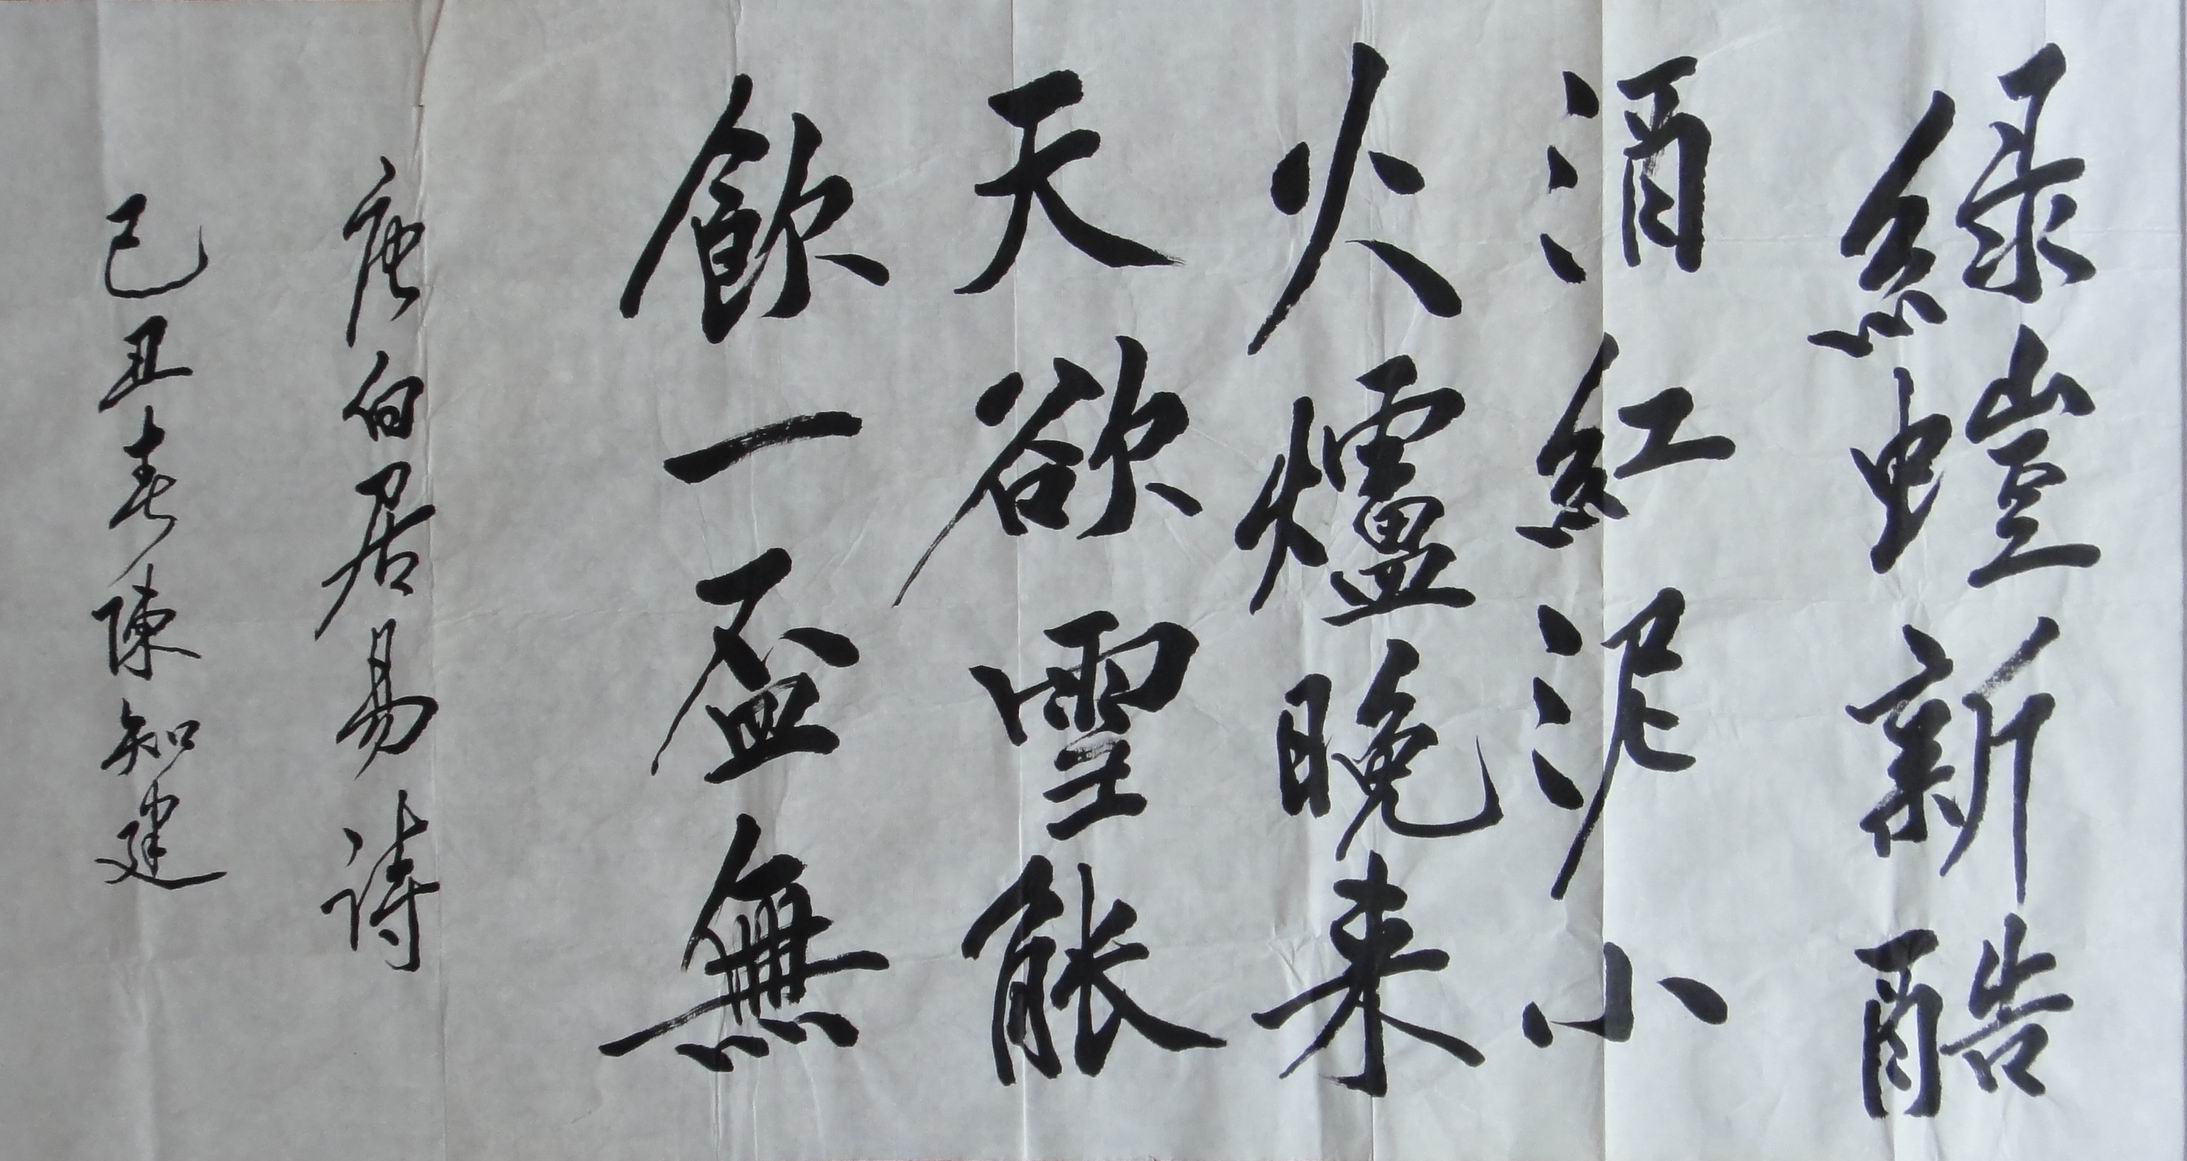 緑螘新酷
酒紅泥小
火爐晚来
天欲雪能
飲一盃無
唐白居易詩
己丑春陳知建